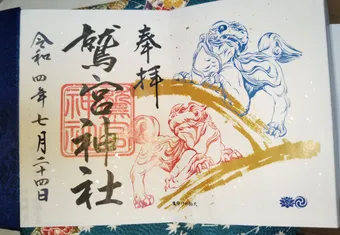 奉拝
鷲宮神社
令和四年七月二十四日